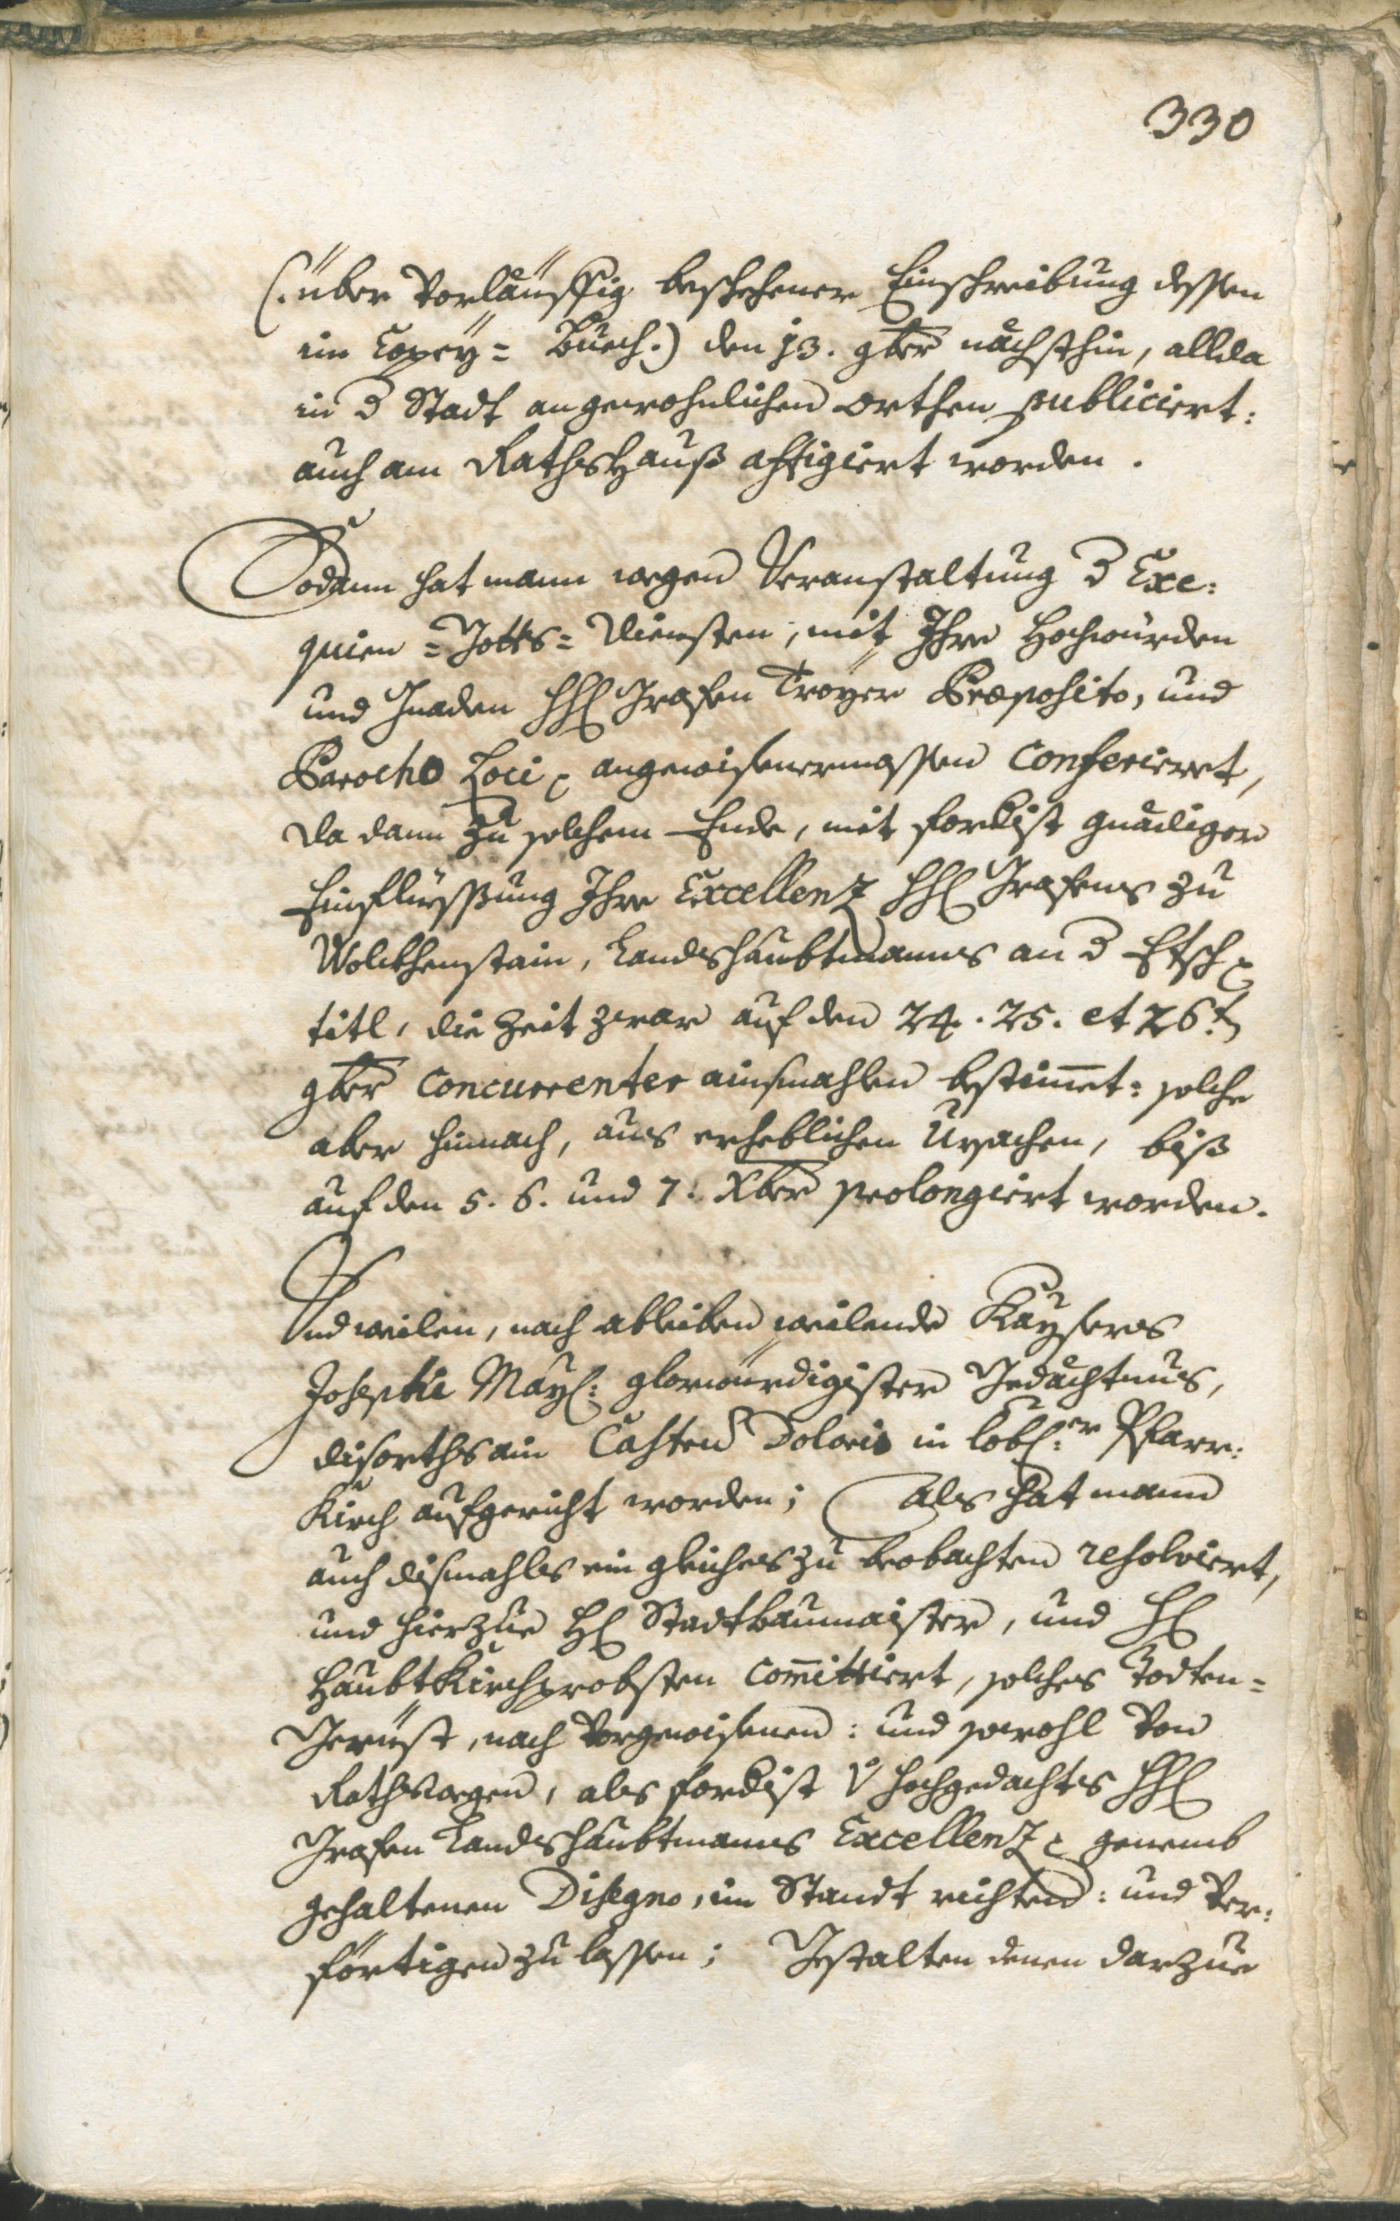 330
(: über Vorläuffig beschehener Einschreibung dessen
im Copey= Buech :) den 13. 9ber nächsthin, allda
in d Stadt angewohnlichen Orthen publiciert:
auch am RathsHauß affigiert worden.
Sodann hat mann wegen Veranstaltung d Exe:
quien = Gotts= Diensten, mit Ihro Hochwürden
und Gnaden HH Grafen Troyer Præposito, und
Parocho Loci angewisenermassen conferieret,
da dann zu solchem Ende, mit fordist gnädiger
Einflüssung Ihro Excellenz HH Grafens zu
Wolckhenstain, Landshaubtmanns an d Etsch
titl, die Zeit zwar auf den 24. 25. et 26t
9ber concurrenter ainsmahlen bestimet: solche
aber hinnach, aus erheblichen Ursachen, biß
auf den 5. 6. und 7: Xber prolongiert worden.
Und weilen, nach ableiben weilende Kaysers
Josephi May: glorwürdigister Gedächtnus,
disorths ain Casten Doloris in lobl:er Pfarr:
Kirch aufgericht worden; als hat mann
auch dismahls ein gleiches zu beobachten resolviert,
und hierzue H Stadtbaumaister, und H
Haubt Kirchprobsten comittiert, solches Todten=
Gerüst, nach Vorgewisenen: und sowohl Von
Rathswegen, als fordist V hochgedachtes HH
Grafen Landshaubtmanns Excellenz genemb
gehaltenen Disegno, im Standt richten: und Ver:
förtigen zu lassen; Gestalten denen darzue